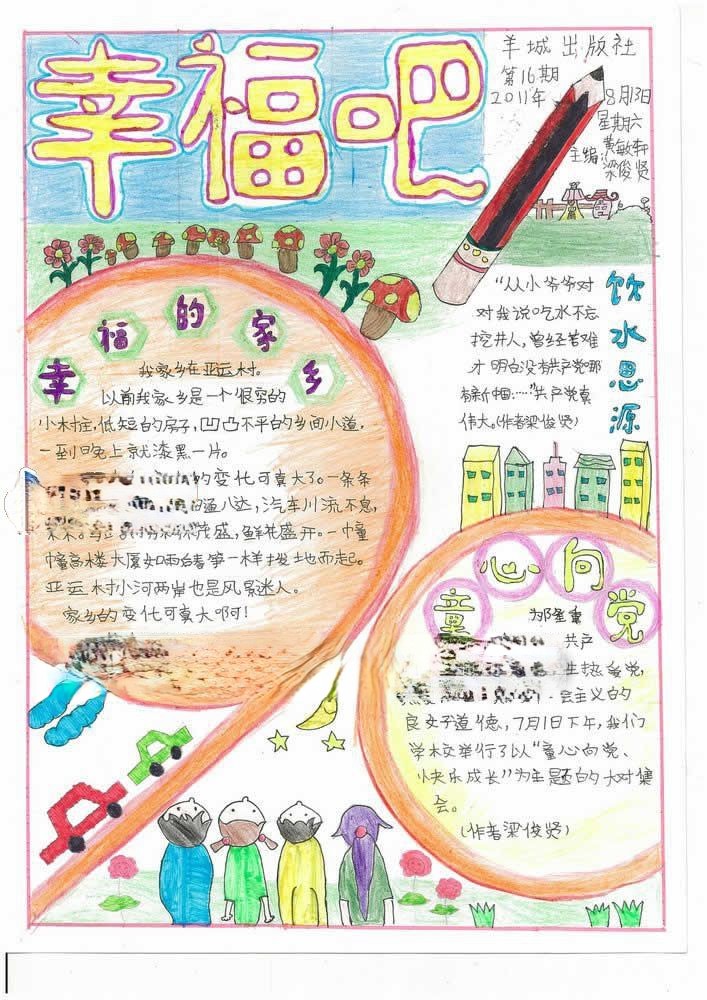 幸福吧
羊城出版社
第16期
2011年8月13日
星期六
主编:黄敏轩
梁俊贤
饮水思源
"从小爷爷对
对我说吃水不忘
挖井人,曾经苦难
才明白没有共产党哪
有新中国……"共产党真
伟大。(作者梁俊贤)
幸福的家乡
我家乡在亚运村。
以前我家乡是一个很穷的
小村庄,低短的房子,凹凸不平的乡间小道,
一到晚上就漆黑一片。
的变化可真大了。一条条
通八达,汽车川流不息,
茂盛,鲜花盛开。一幢
幢高楼大厦如雨后春笋一样拔地而起。
亚运村小河两岸也是风景迷人。
家乡的变化可真大啊!
童心向党
为隆重
共产
生热爱党,
会主义的
良好道德,7月1日下午,我们
学校举行了以"童心向党、
快乐成长"为主题的大对集
会。
(作者梁俊贤)